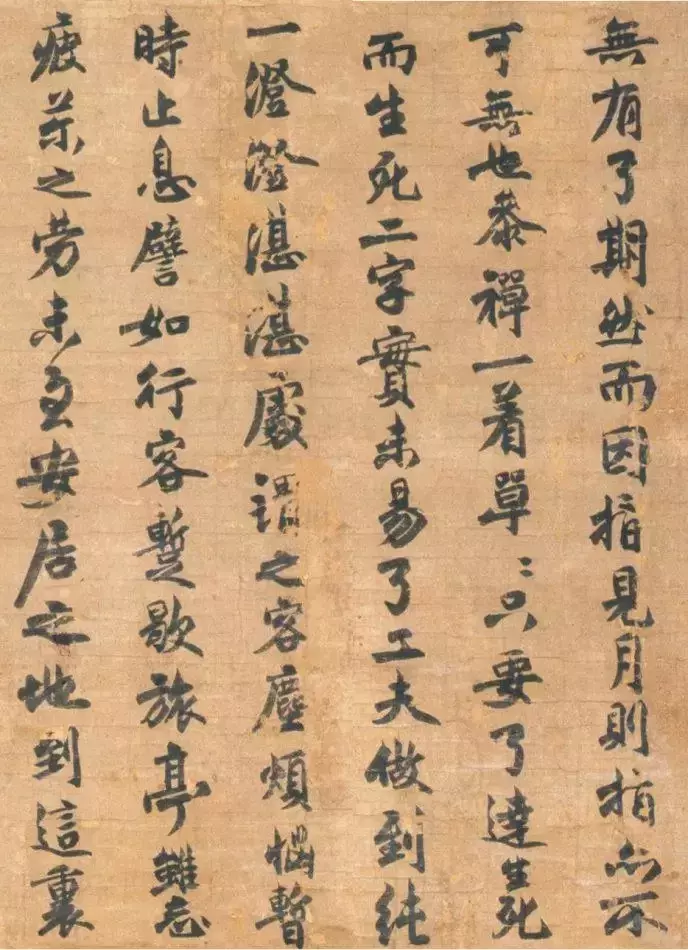 無有了期然而因指見月則指亦不
可無也叅禪一着單〻只要了達生死
而生死二字實未易了工夫做到純
一澄澄湛湛處謂之客塵煩惱暫
時止息譬如行客暫歇旅亭雖忘
疲苶之劳未至安居之地到這裏